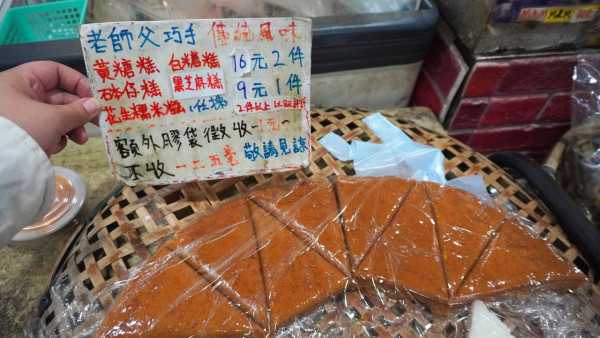 老師父巧手 傳統風味
黃糖糕 白糖糕 16元2件
砵仔糕 黑芝麻糕 9元1件
花生糯米糍 任揀 2件以上
額外膠袋徵收一元
不收 五毫 敬請見諒